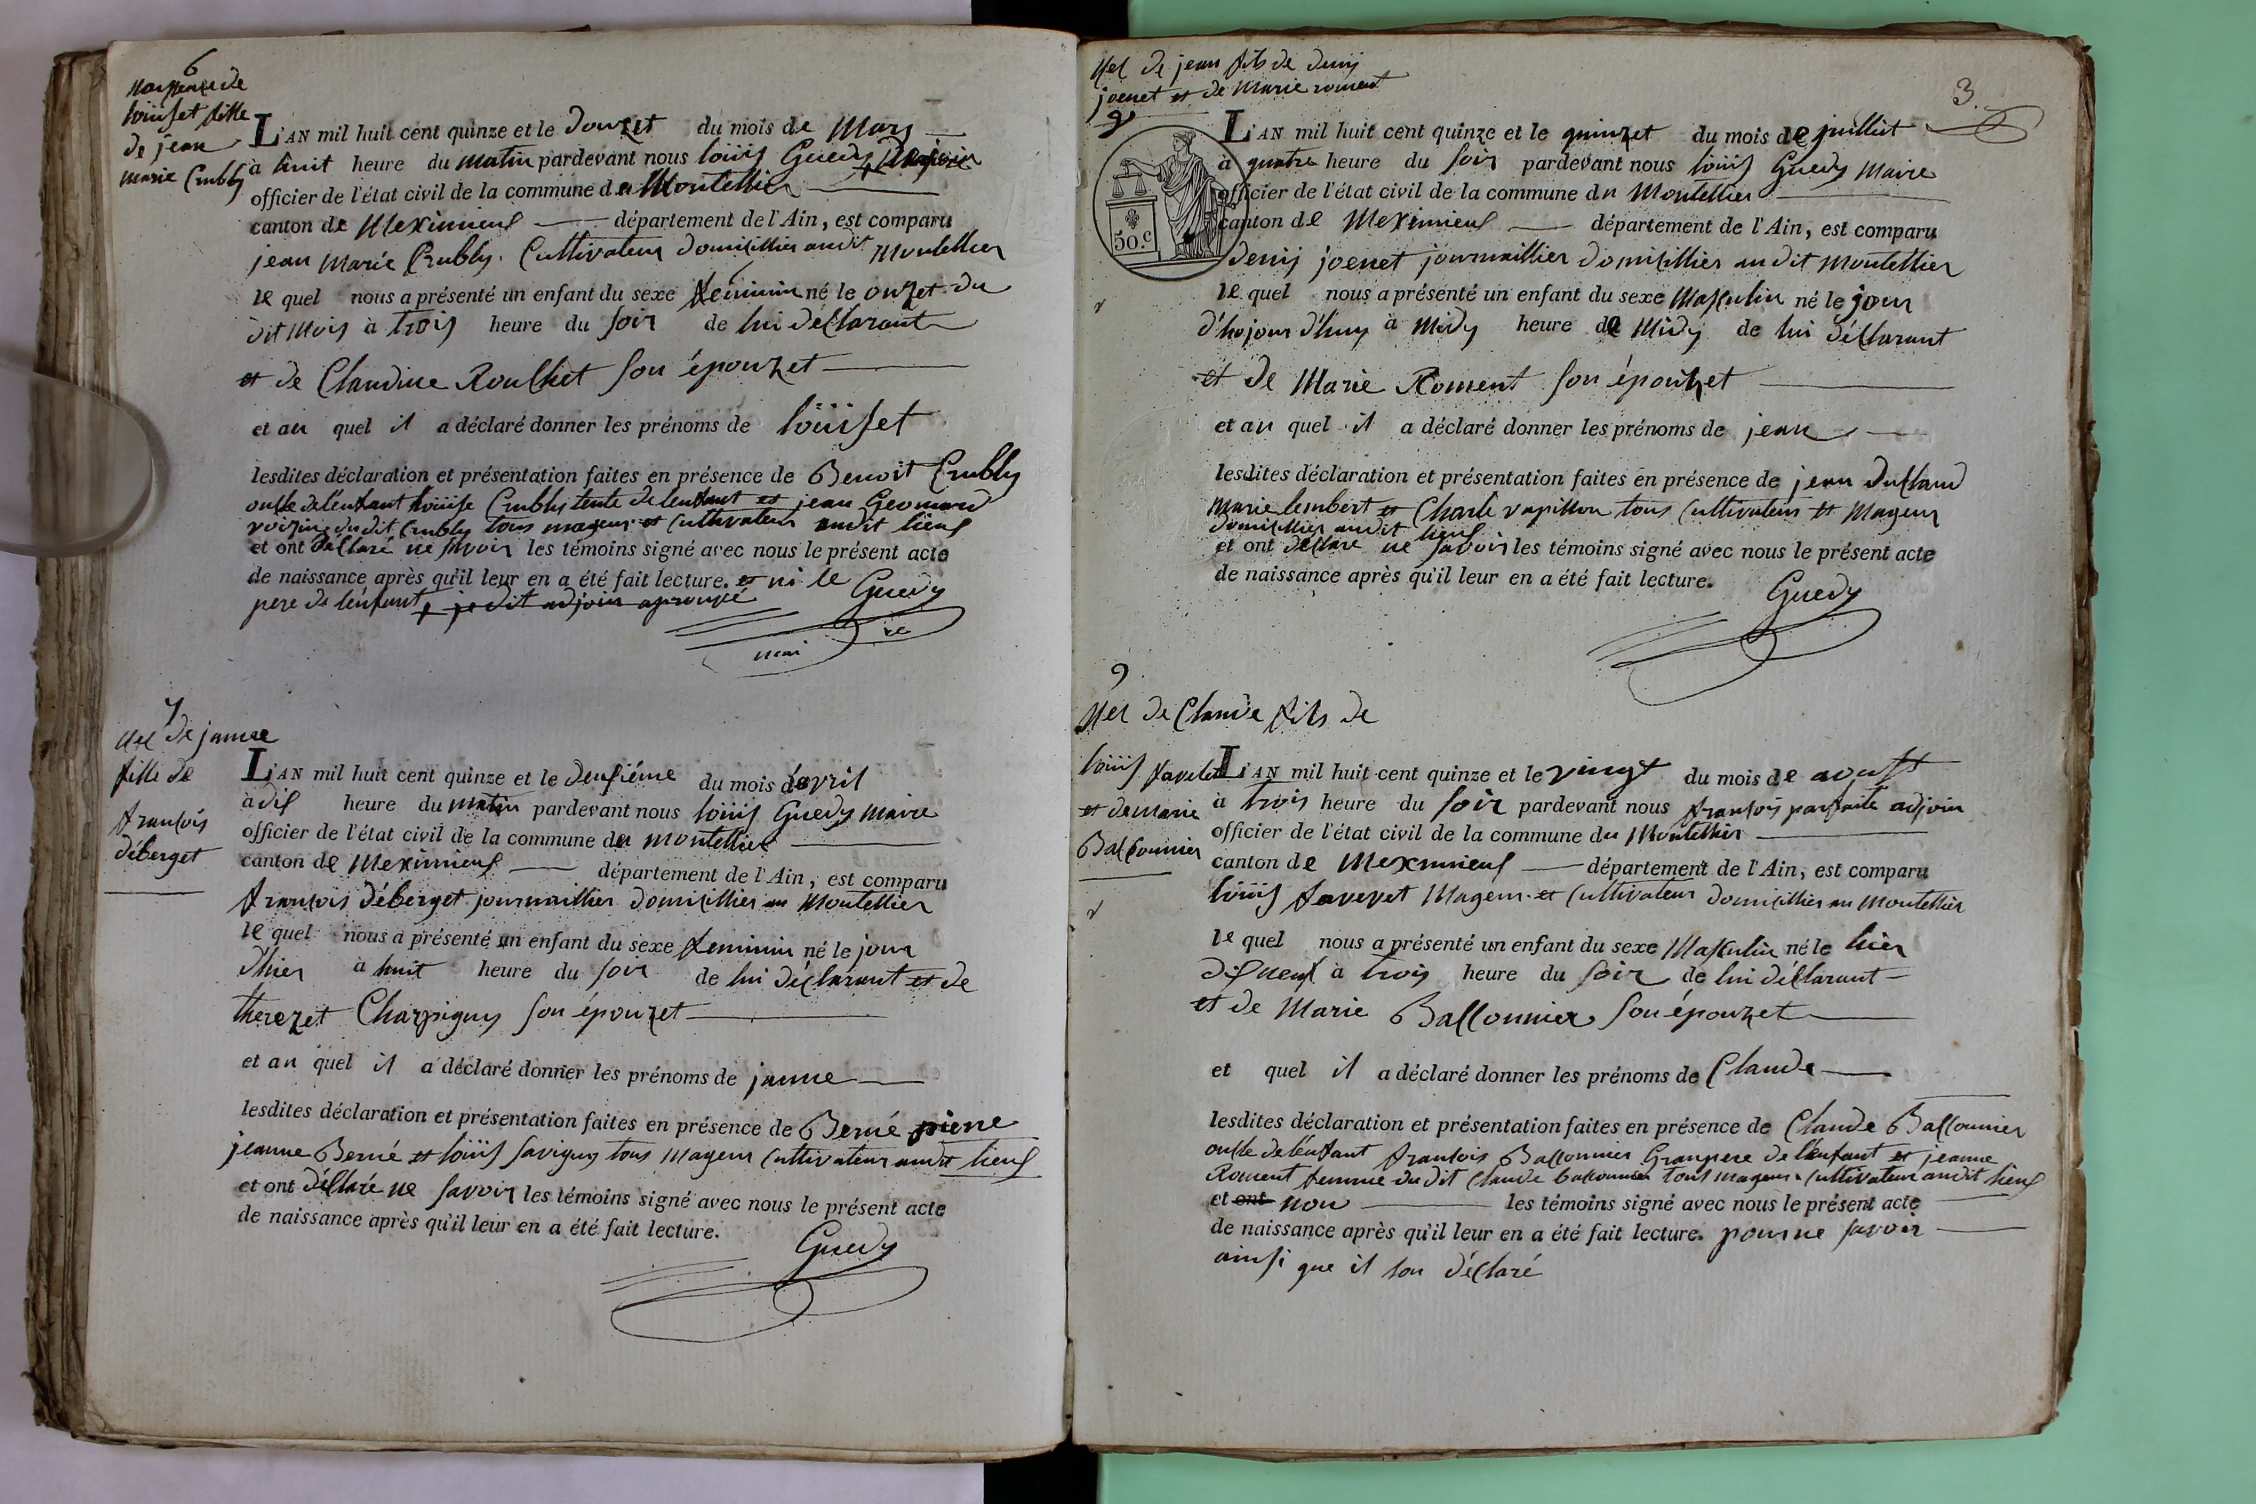 6
naissence de
loüiset fille
de jean
marie Crubly
L'AN mil huit cent quinze et le douzet du mois de Mars
à huit heure du matin pardevant nous loüis Guedy
officier de l'état civil de la commune du Montellier
canton de Meximieux département de l'Ain, est comparu
jean Marie Crubly. Cultivateur domicillier audit Montellier
le quel nous a présenté un enfant du sexe feminin né le onzet du
dit Mois à trois heure du soir de lui déclarant
et de Claudine Roulhet son épouzet
et au quel il a déclaré donner les prénoms de loüiset
lesdites déclaration et présentation faites en présence de Benoit Crubly
oncle de lenfant loüise Crubly tente de lenfant et jean Geonard
voizin du dit Crubly tous mageur et Cultivateur audit lieux
et ont déclaré ne savoir les témoins signé avec nous le présent acte
de naissance après qu'il leur en a été fait lecture. et ni le
pere de lenfant, je dit adjoin aprouvé
Guedy
mai re
7
de janne
fille de
francois
déberget
L'AN mil huit cent quinze et le deuxiéme du mois d'avril
à dix heure du matin pardevant nous loüis Guedy maire
officier de l'état civil de la commune du montellier
canton de Meximieux département de l'Ain, est comparu
francois Déberget journaillier domicillier au Montellier
le quel nous a présenté un enfant du sexe feminin né le jour
d'hier à huit heure du soir de lui déclarant et de
therezet Charpiguy son épouzet
et au quel il a déclaré donner les prénoms de janne
lesdites déclaration et présentation faites en présence de Berné pierre
jeanne Berné et loüis savigny tous Mageur Cultivateur audit lieux
et ont déclaré ne savoir les témoins signé avec nous le présent acte
de naissance après qu'il leur en a été fait lecture.
Guedy
de jean fils de denis
joenet et de Marie roment
3.
50.c
L'AN mil huit cent quinze et le quinzet du mois de juillet
à quatre heure du soir pardevant nous loüis Guedy Maire
officier de l'état civil de la commune du Montellier
canton de Meximieux département de l'Ain, est comparu
denis joenet journaillier domicillier audit montellier
le quel nous a présenté un enfant du sexe Masculin né le jour
d'hojour d'huy à midy heure de Midy de lui déclarant
et de Marie Roment son épouzet
et au quel il a déclaré donner les prénoms de jean
lesdites déclaration et présentation faites en présence de jean duclaud
marie lembert et Charle vapillon tous Cultivateur et Mageur
domicillier audit lieux
et ont déclaré ne savoir les témoins signé avec nous le présent acte
de naissance après qu'il leur en a été fait lecture.
Guedy
9
de Claude fils de
loüis
et de Marie
Balconnier
L'AN mil huit cent quinze et le vingt du mois de aoust
à trois heure du soir pardevant nous francois parfaite adjoin
officier de l'état civil de la commune du Montellier
canton de Meximieux département de l'Ain, est comparu
loüis favevet Mageur et Cultivateur domicillier au Montellier
le quel nous a présenté un enfant du sexe Masculin né le hier
dixneuf à trois heure du soir de lui déclarant
et de Marie Balconnier son épouzet
et quel il a déclaré donner les prénoms de Claude
lesdites déclaration et présentation faites en présence de Claude Balconnier
oncle de lenfant francois Balconnier Granpere de lenfant et jeanne
Roment femme du dit Claude balconnier tous mageur Cultivateur audit lieux
et ont non les témoins signé avec nous le présent acte
de naissance après qu'il leur en a été fait lecture. pour ne savoir
ainsi que il lon déclaré